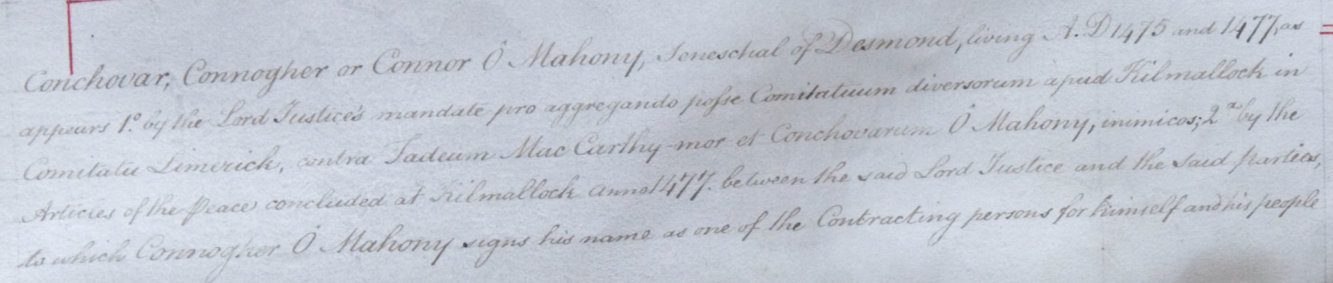 Conchovar, Connogher or Connor Ô Mahony, Seneschal of Desmond, living A.D 1475 and 1477, as
appears 1.º by the Lord Justice's mandate pro aggregando posse Comitatuum diversorum apud Kilmallock in
Comitatu Limerick, contra Tadeum Mac Carthy-mor et Conchovarum Ô Mahony, inimicos; 2.º by the
Articles of the Peace concluded at Kilmallock anno 1477. between the said Lord Justice and the said parties,
to which Connogher Ô Mahony signs his name as one of the Contracting persons for himself and his people